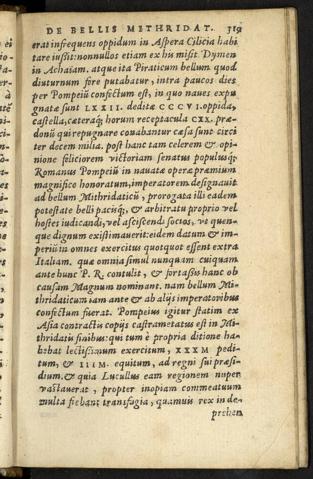 DE BELLIS METHRIDAT. 319
erat infrequens oppidum in Aspera Cilicia habi
tare iussit: nonnullos etiam ex his misit Dymen
in Achaiam. atque ita Piraticum bellum quod
diuturnum fore putabatur, intra paucos dies
per Pompeiũ confectum est, in quo naues expu
gnatæ sunt LXXII. deditæ CCCVI. oppida,
castella, cæteraq; horum receptacula CXX. præ-
donũ qui repugnare conabantur cæsa sunt circi
ter decem milia. post hanc tam celerem & opi-
nione feliciorem victoriam senatus populusq;
Romanus Pompeiũ in nauatæ operæ præmium
magnifice honoratum, imperatorem designauit
ad bellum Mithridaticũ, prorogata illi eadem
potestate belli pacisq;, & arbitratu proprio vel
hostes iudicandi, vel asciscendi socios, vt quen-
que dignum existimauerit: eidem datum & im-
periũ in omnes exercitus quotquot essent extra
Italiam. quæ omnia simul nunquam cuiquam
ante hunc P. R. contulit, & fortassis hanc ob
causam Magnum nominant. nam bellum Mi-
thridaticum iam ante & ab alijs imperatoribus
confectum fuerat. Pompeius igitur statim ex
Asia contractis copijs castrametatus est in Mi-
thridatis finibus: qui tum è propria ditione ha-
bebat lectissimum exercitum, XXXM pedi-
tum, & IIIM. equitum, ad regni sui præsi-
dium. & quia Lucullus eam regionem nuper
vastauerat, propter inopiam commeatuum
multa fiebant transfugia, quamuis rex in de-
prehen